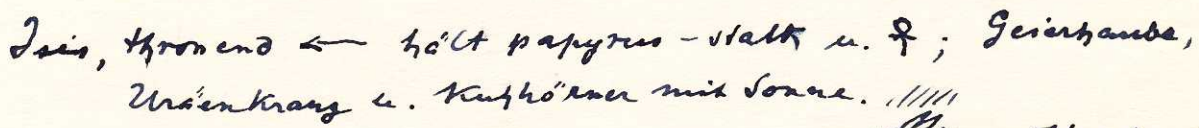 Isis, thronend ← hält papyrus-stab u. ☥; Geierhaube,
Uräenkranz u. Kuhhörner mit Sonne. /////